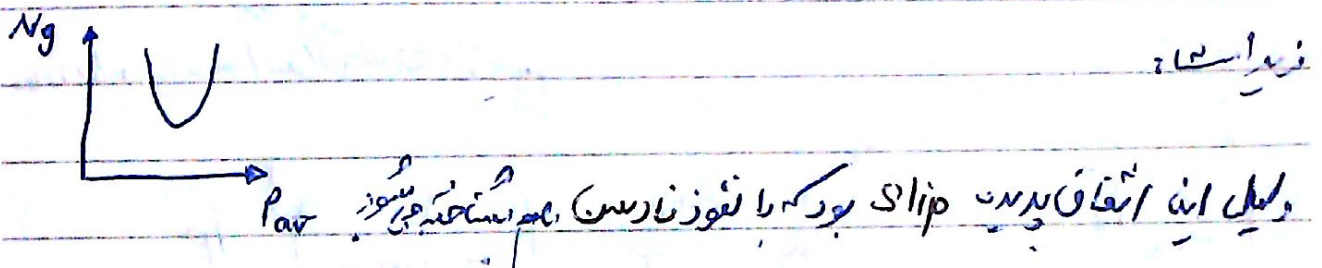 Ng
Pav
دلیل این اتفاق پدیده slip بود که با نفوذ نادسن هم شناخته می شود.